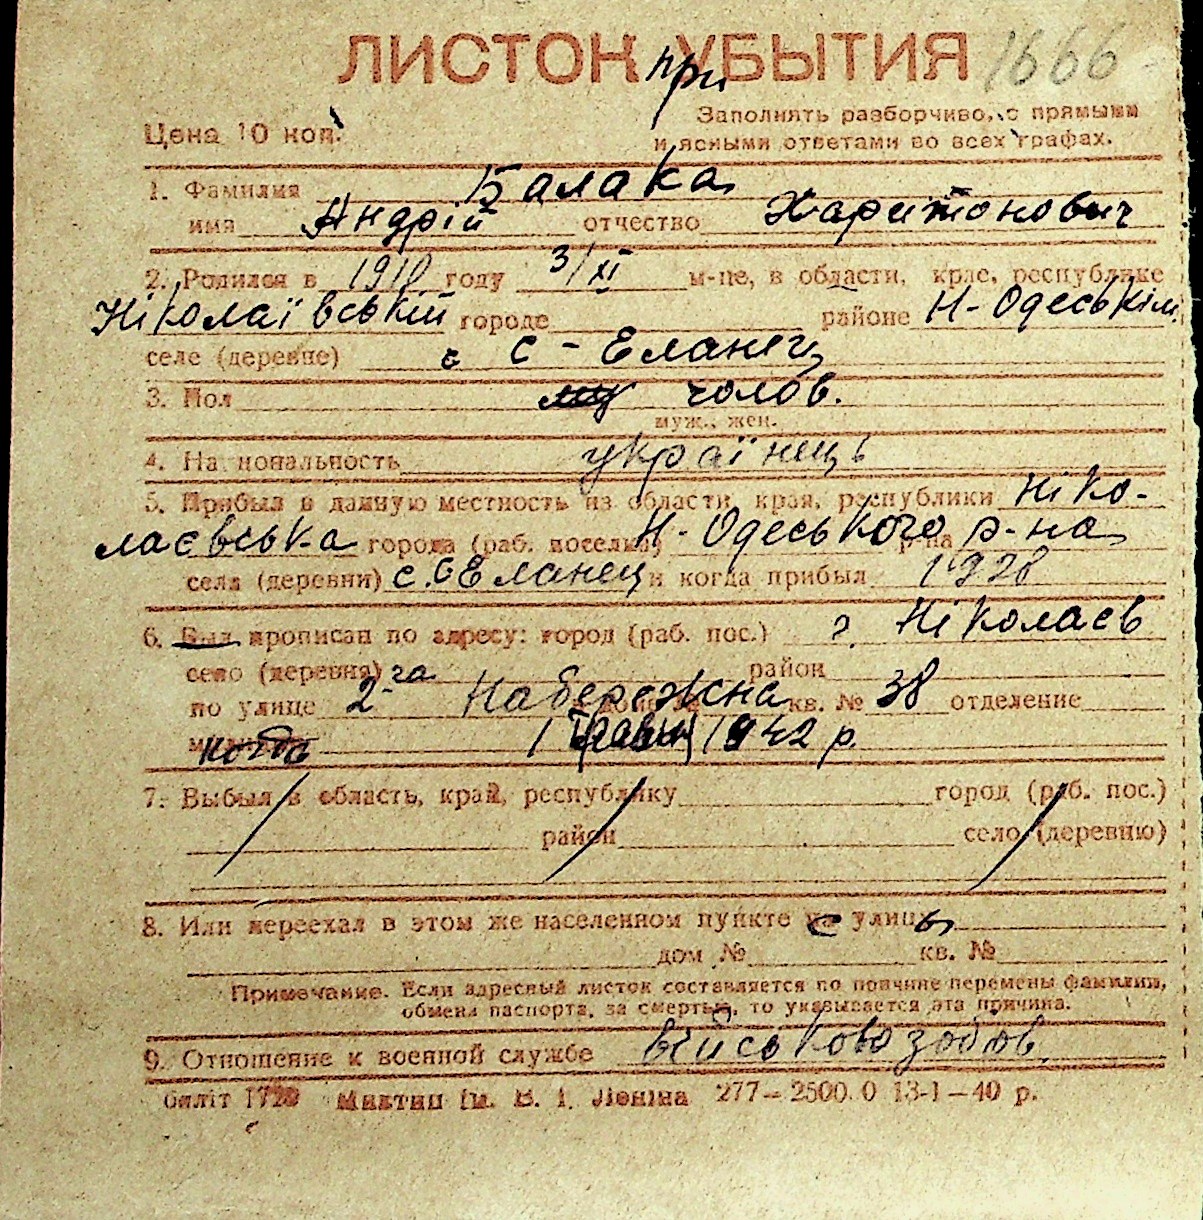 ЛИСТОК УБЫТИЯ 1666
при
Цена 10 коп.
Заполнять разборчиво, с прямыми
и ясными ответами во всех графах.
1. Фамилия Балака
имя Андрій отчество Харитонович
2. Родился в 1910 году 3/XI м-це, в области, крае, республике
Ніколаївській городе районе Н-Одеськім
селе (деревне) с - Еланец
3. Пол чолов.
муж., жен.
4. Национальность українець
5. Прибыл в данную местность из области, края, республики Ніко-
лаєвська города (раб. поселка) Н-Одеського р-на
села (деревни) с. Еланец и когда прибыл 1928
6. Был прописан по адресу: город (раб. пос.) г. Ніколаєв
село (деревня) район
по улице 2-га Набережна кв. № 38 отделение
когда 1 Травн 1942 р.
7. Выбыл в область, край, республику город (раб. пос.)
район село (деревню)
8. Или переехал в этом же населенном пункте с улицы
дом № кв. №
Примечание. Если адресный листок составляется по причине перемены фамилии,
обмена паспорта, за смертью, то указывается эта причина.
9. Отношение к военной службе військовозобов.
им. В. І. Леніна 277—2500.0 13-1—40 р.